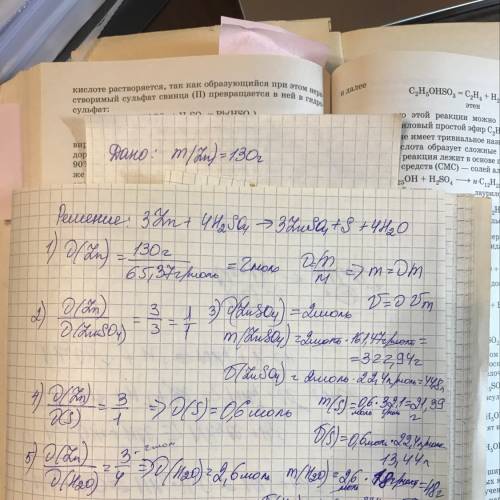 кислоте растворяется, так как образующийся при этом нера
створимый сульфат свинца (II) превращается в ней в гидро
сульфат:
и далее
C₂H₅OHSO₃ = C₂H₄ + H₂
этен
этой реакции можно
иловый простой эфир C₂H
не имеет тривиальное наз
слота образует сложные
реакция лежит в основе
средств (СМС) — солей ал
OH + H₂SO₄ ⟶ н C₁₂H
лаурило
Дано: m(Zn)=130г
Решение: 3Zn + 4H₂SO₄ → 3ZnSO₄ + S + 4H₂O
1) υ(Zn) = 130г / 65,37г/моль = 2моль υ=m/M => m=υM
V=υVm
2) υ(Zn) / υ(ZnSO₄) = 3/3 = 1/1
3) υ(ZnSO₄) = 2моль
m(ZnSO₄) = 2моль · 161,47г/моль =
= 322,94г
V(ZnSO₄) = 2моль · 22,4л/моль = 44,8л
4) υ(Zn) / υ(S) = 3/1 => υ(S) = 0,6моль
m(S) = 0,6моль · 32г/моль = 21,39г
V(S) = 0,6моль · 22,4л/моль
13,44л
5) υ(Zn) / υ(H₂O) = 3/4 => υ(H₂O) = 2,6моль
m(H₂O) = 2,6моль · 18г/моль